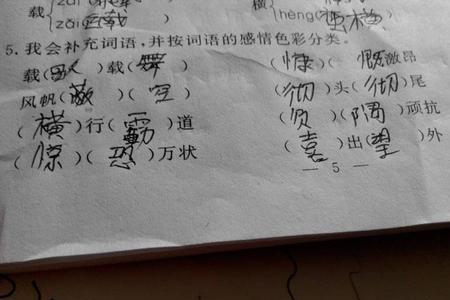 载 横
zǎi( hèng(蛮横)
5.我会补充词语,并按词语的感情色彩分类。
载(歌)载(舞) (慷 慨激昂
风帆(蔽)(空) (彻)头(彻)尾
(横)行(霸)道 (负)(隅)顽抗
(惊)(恐)万状 (喜)出(望)外
— 5 —